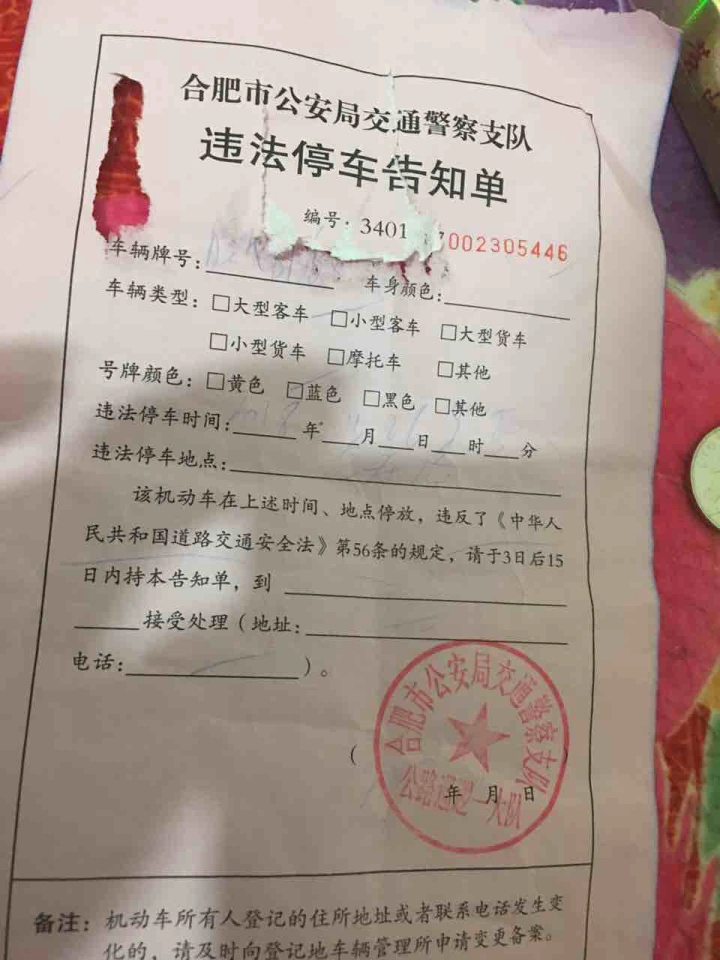 合肥市公安局交通警察支队
违法停车告知单
编号：3401 7002305446
车辆牌号： 车身颜色：
车辆类型：□大型客车 □小型客车 □大型货车
□小型货车 □摩托车 □其他
号牌颜色：□黄色 □蓝色 □黑色 □其他
违法停车时间： 年 月 日 时 分
违法停车地点：
该机动车在上述时间、地点停放，违反了《中华人
民共和国道路交通安全法》第56条的规定，请于3日后15
日内持本告知单，到
接受处理（地址：
电话： ）。
合肥市公安局交通警察支队
( )
年 月 日
大队
备注：机动车所有人登记的住所地址或者联系电话发生变
化的，请及时向登记地车辆管理所申请变更备案。